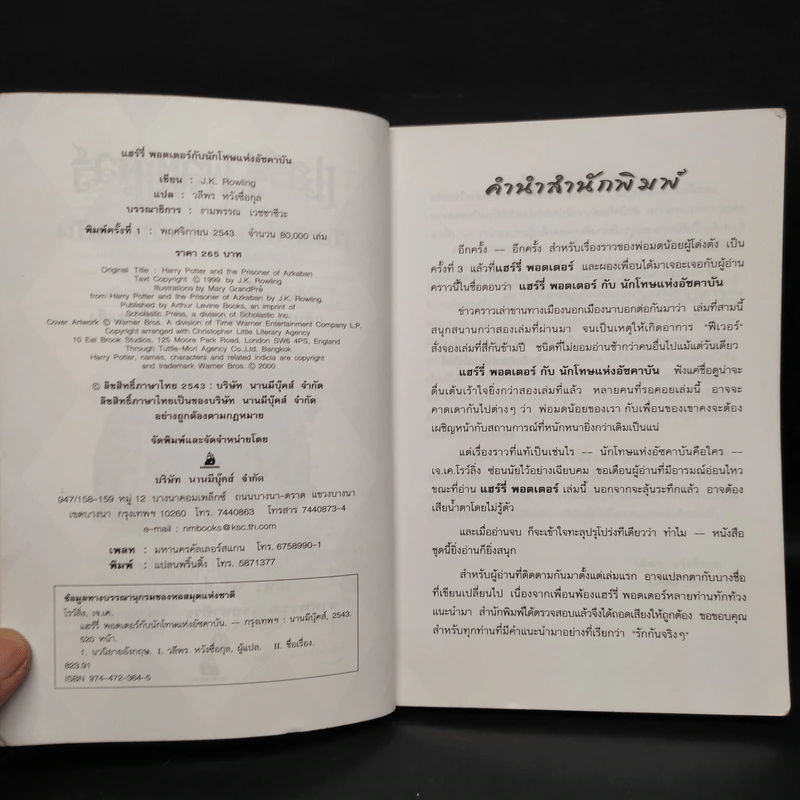 แฮร์รี่ พอตเตอร์กับนักโทษแห่งอัซคาบัน
เขียน : J.K. Rowling
แปล : วลีพร หวังซื่อกุล
บรรณาธิการ : งามพรรณ เวชชาชีวะ
พิมพ์ครั้งที่ 1 : พฤศจิกายน 2543 จำนวน 80,000 เล่ม
ราคา 265 บาท
Original Title : Harry Potter and the Prisoner of Azkaban
Text Copyright © 1999 by J.K. Rowling
Illustrations by Mary GrandPré
from Harry Potter and the Prisoner of Azkaban by J.K. Rowling.
Published by Arthur Levine Books, an imprint of
Scholastic Press, a division of Scholastic Inc.
Cover Artwork © Warner Bros. A division of Time Warner Entertainment Company L.P.
Copyright arranged with Christopher Little Literary Agency
10 Eel Brook Studios, 125 Moore Park Road, London SW6 4PS, England
Through Tuttle-Mori Agency Co., Ltd. Bangkok
Harry Potter, names, characters and related indicia are copyright
and trademark Warner Bros. © 2000
© ลิขสิทธิ์ภาษาไทย 2543 : บริษัท นานมีบุ๊คส์ จำกัด
ลิขสิทธิ์ภาษาไทยเป็นของบริษัท นานมีบุ๊คส์ จำกัด
อย่างถูกต้องตามกฎหมาย
จัดพิมพ์และจัดจำหน่ายโดย
บริษัท นานมีบุ๊คส์ จำกัด
947/158-159 หมู่ 12 บางนาคอมเพล็กซ์ ถนนบางนา-ตราด แขวงบางนา
เขตบางนา กรุงเทพฯ 10260 โทร. 7440863 โทรสาร 7440873-4
e-mail : nmbooks@ksc.th.com
เพลท : มหานครคัลเลอร์สแกน โทร. 6758990-1
พิมพ์ : แปลนพริ้นติ้ง โทร. 5871377
ข้อมูลทางบรรณานุกรมของหอสมุดแห่งชาติ
โรว์ลิ่ง, เจ.เค.
แฮร์รี่ พอตเตอร์กับนักโทษแห่งอัซคาบัน. — กรุงเทพฯ : นานมีบุ๊คส์, 2543.
520 หน้า.
1. นวนิยายอังกฤษ. I. วลีพร หวังซื่อกุล, ผู้แปล. II. ชื่อเรื่อง.
823.91
ISBN 974-472-364-5
คำนำสำนักพิมพ์
อีกครั้ง -- อีกครั้ง สำหรับเรื่องราวของพ่อมดน้อยผู้โด่งดัง เป็น
ครั้งที่ 3 แล้วที่แฮร์รี่ พอตเตอร์ และผองเพื่อนได้มาเจอะเจอกับผู้อ่าน
คราวนี้ในชื่อตอนว่า แฮร์รี่ พอตเตอร์ กับ นักโทษแห่งอัซคาบัน
ข่าวคราวเล่าขานทางเมืองนอกเมืองนาบอกต่อกันมาว่า เล่มที่สามนี้
สนุกสนานกว่าสองเล่มที่ผ่านมา จนเป็นเหตุให้เกิดอาการ "ฟีเวอร์"
สั่งจองเล่มที่สี่กันข้ามปี ชนิดที่ไม่ยอมอ่านช้ากว่าคนอื่นไปแม้แต่วันเดียว
แฮร์รี่ พอตเตอร์ กับ นักโทษแห่งอัซคาบัน ฟังแค่ชื่อดูน่าจะ
ตื่นเต้นเร้าใจยิ่งกว่าสองเล่มที่แล้ว หลายคนที่รอคอยเล่มนี้ อาจจะ
คาดเดากันไปต่างๆ ว่า พ่อมดน้อยของเรา กับเพื่อนของเขาคงจะต้อง
เผชิญหน้ากับสถานการณ์ที่หนักหนายิ่งกว่าเดิมเป็นแน่
แต่เรื่องราวที่แท้เป็นเช่นไร -- นักโทษแห่งอัซคาบันคือใคร --
เจ.เค.โรว์ลิ่ง ซ่อนนัยไว้อย่างเฉียบคม ขอเตือนผู้อ่านที่มีอารมณ์อ่อนไหว
ขณะที่อ่าน แฮร์รี่ พอตเตอร์ เล่มนี้ นอกจากจะลุ้นระทึกแล้ว อาจต้อง
เสียน้ำตาโดยไม่รู้ตัว
และเมื่ออ่านจบ ก็จะเข้าใจทะลุปรุโปร่งทีเดียวว่า ทำไม -- หนังสือ
ชุดนี้ยิ่งอ่านก็ยิ่งสนุก
สำหรับผู้อ่านที่ติดตามกันมาตั้งแต่เล่มแรก อาจแปลกตากับบางชื่อ
ที่เขียนเปลี่ยนไป เนื่องจากเพื่อนพ้องแฮร์รี่ พอตเตอร์หลายท่านทักท้วง
แนะนำมา สำนักพิมพ์ได้ตรวจสอบแล้วจึงได้ถอดเสียงให้ถูกต้อง ขอขอบคุณ
สำหรับทุกท่านที่มีคำแนะนำมาอย่างที่เรียกว่า "รักกันจริงๆ"